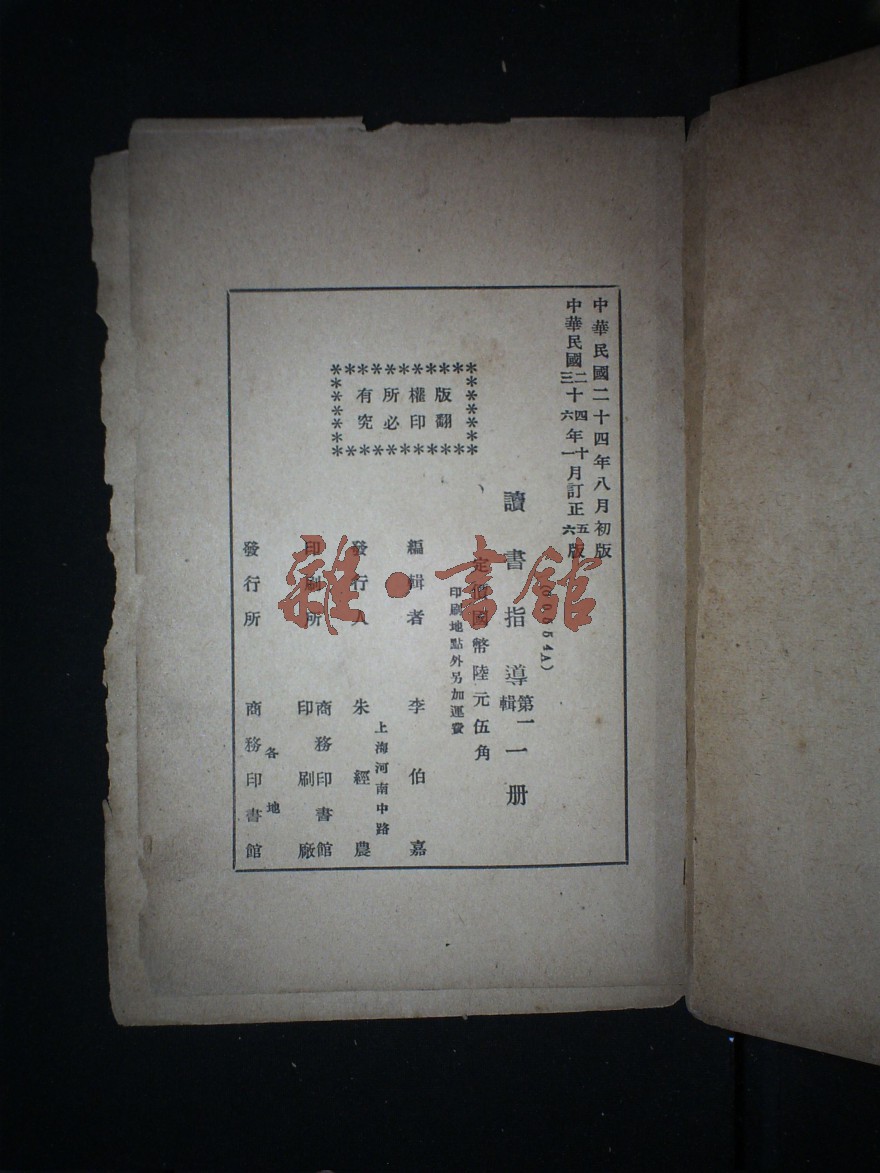 中華民國二十四年八月初版
中華民國二三十四六年十一月訂正五六版
讀書指導第一輯一册
定價國幣陸元伍角
印刷地點外另加運費
版權所有
翻印必究
編輯者 李伯嘉
上海河南中路
發行人 朱經農
印刷所 商務印書館
印刷廠
各地
發行所 商務印書館
雜·書館